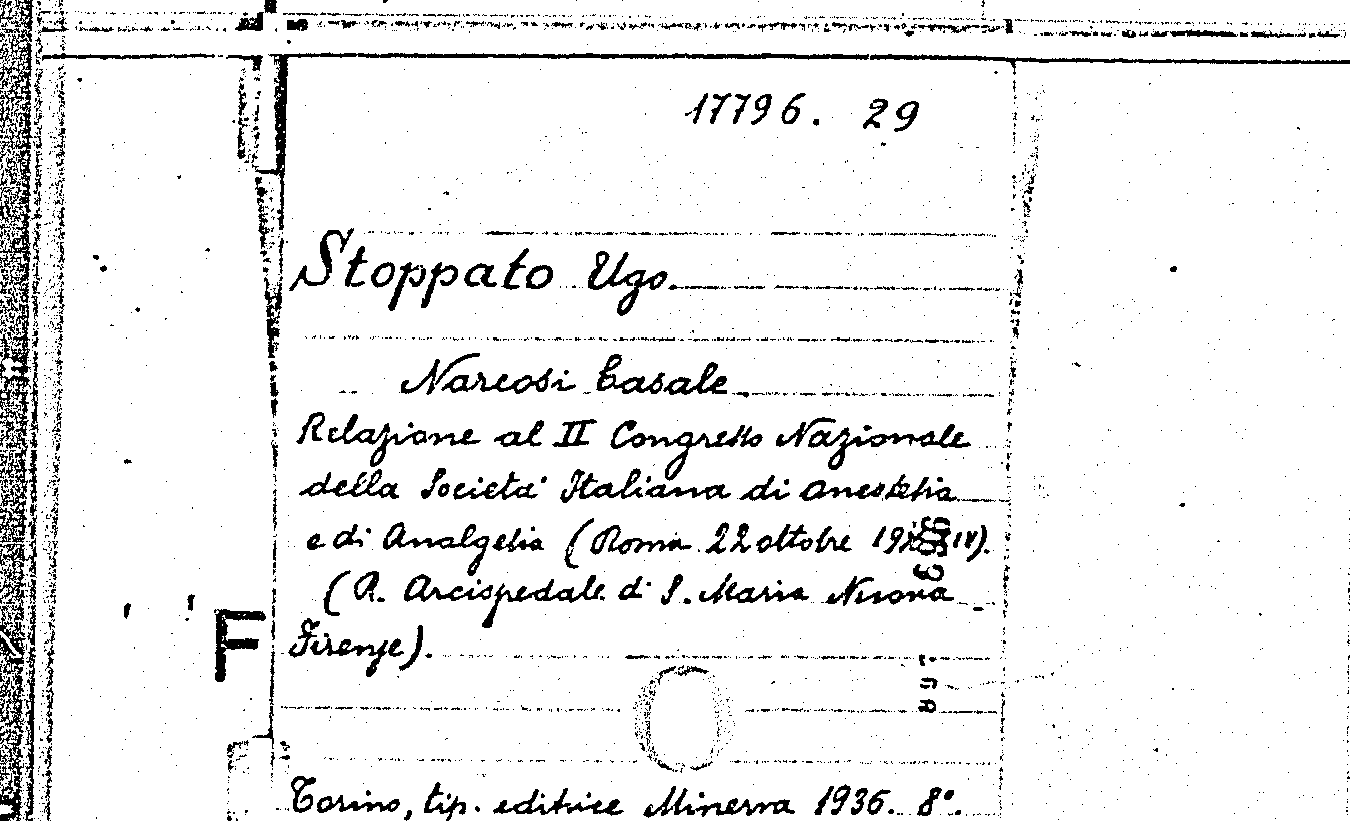 17796. 29
Stoppato Ugo.
Narcosi basale
Relazione al II Congresso Nazionale
della Società Italiana di Anestesia
e di Analgesia (Roma 22 ottobre
(R. Arcispedale di S. Maria Nuova
Firenze).
F
Torino, tip. editrice Minerva 1936. 8°.